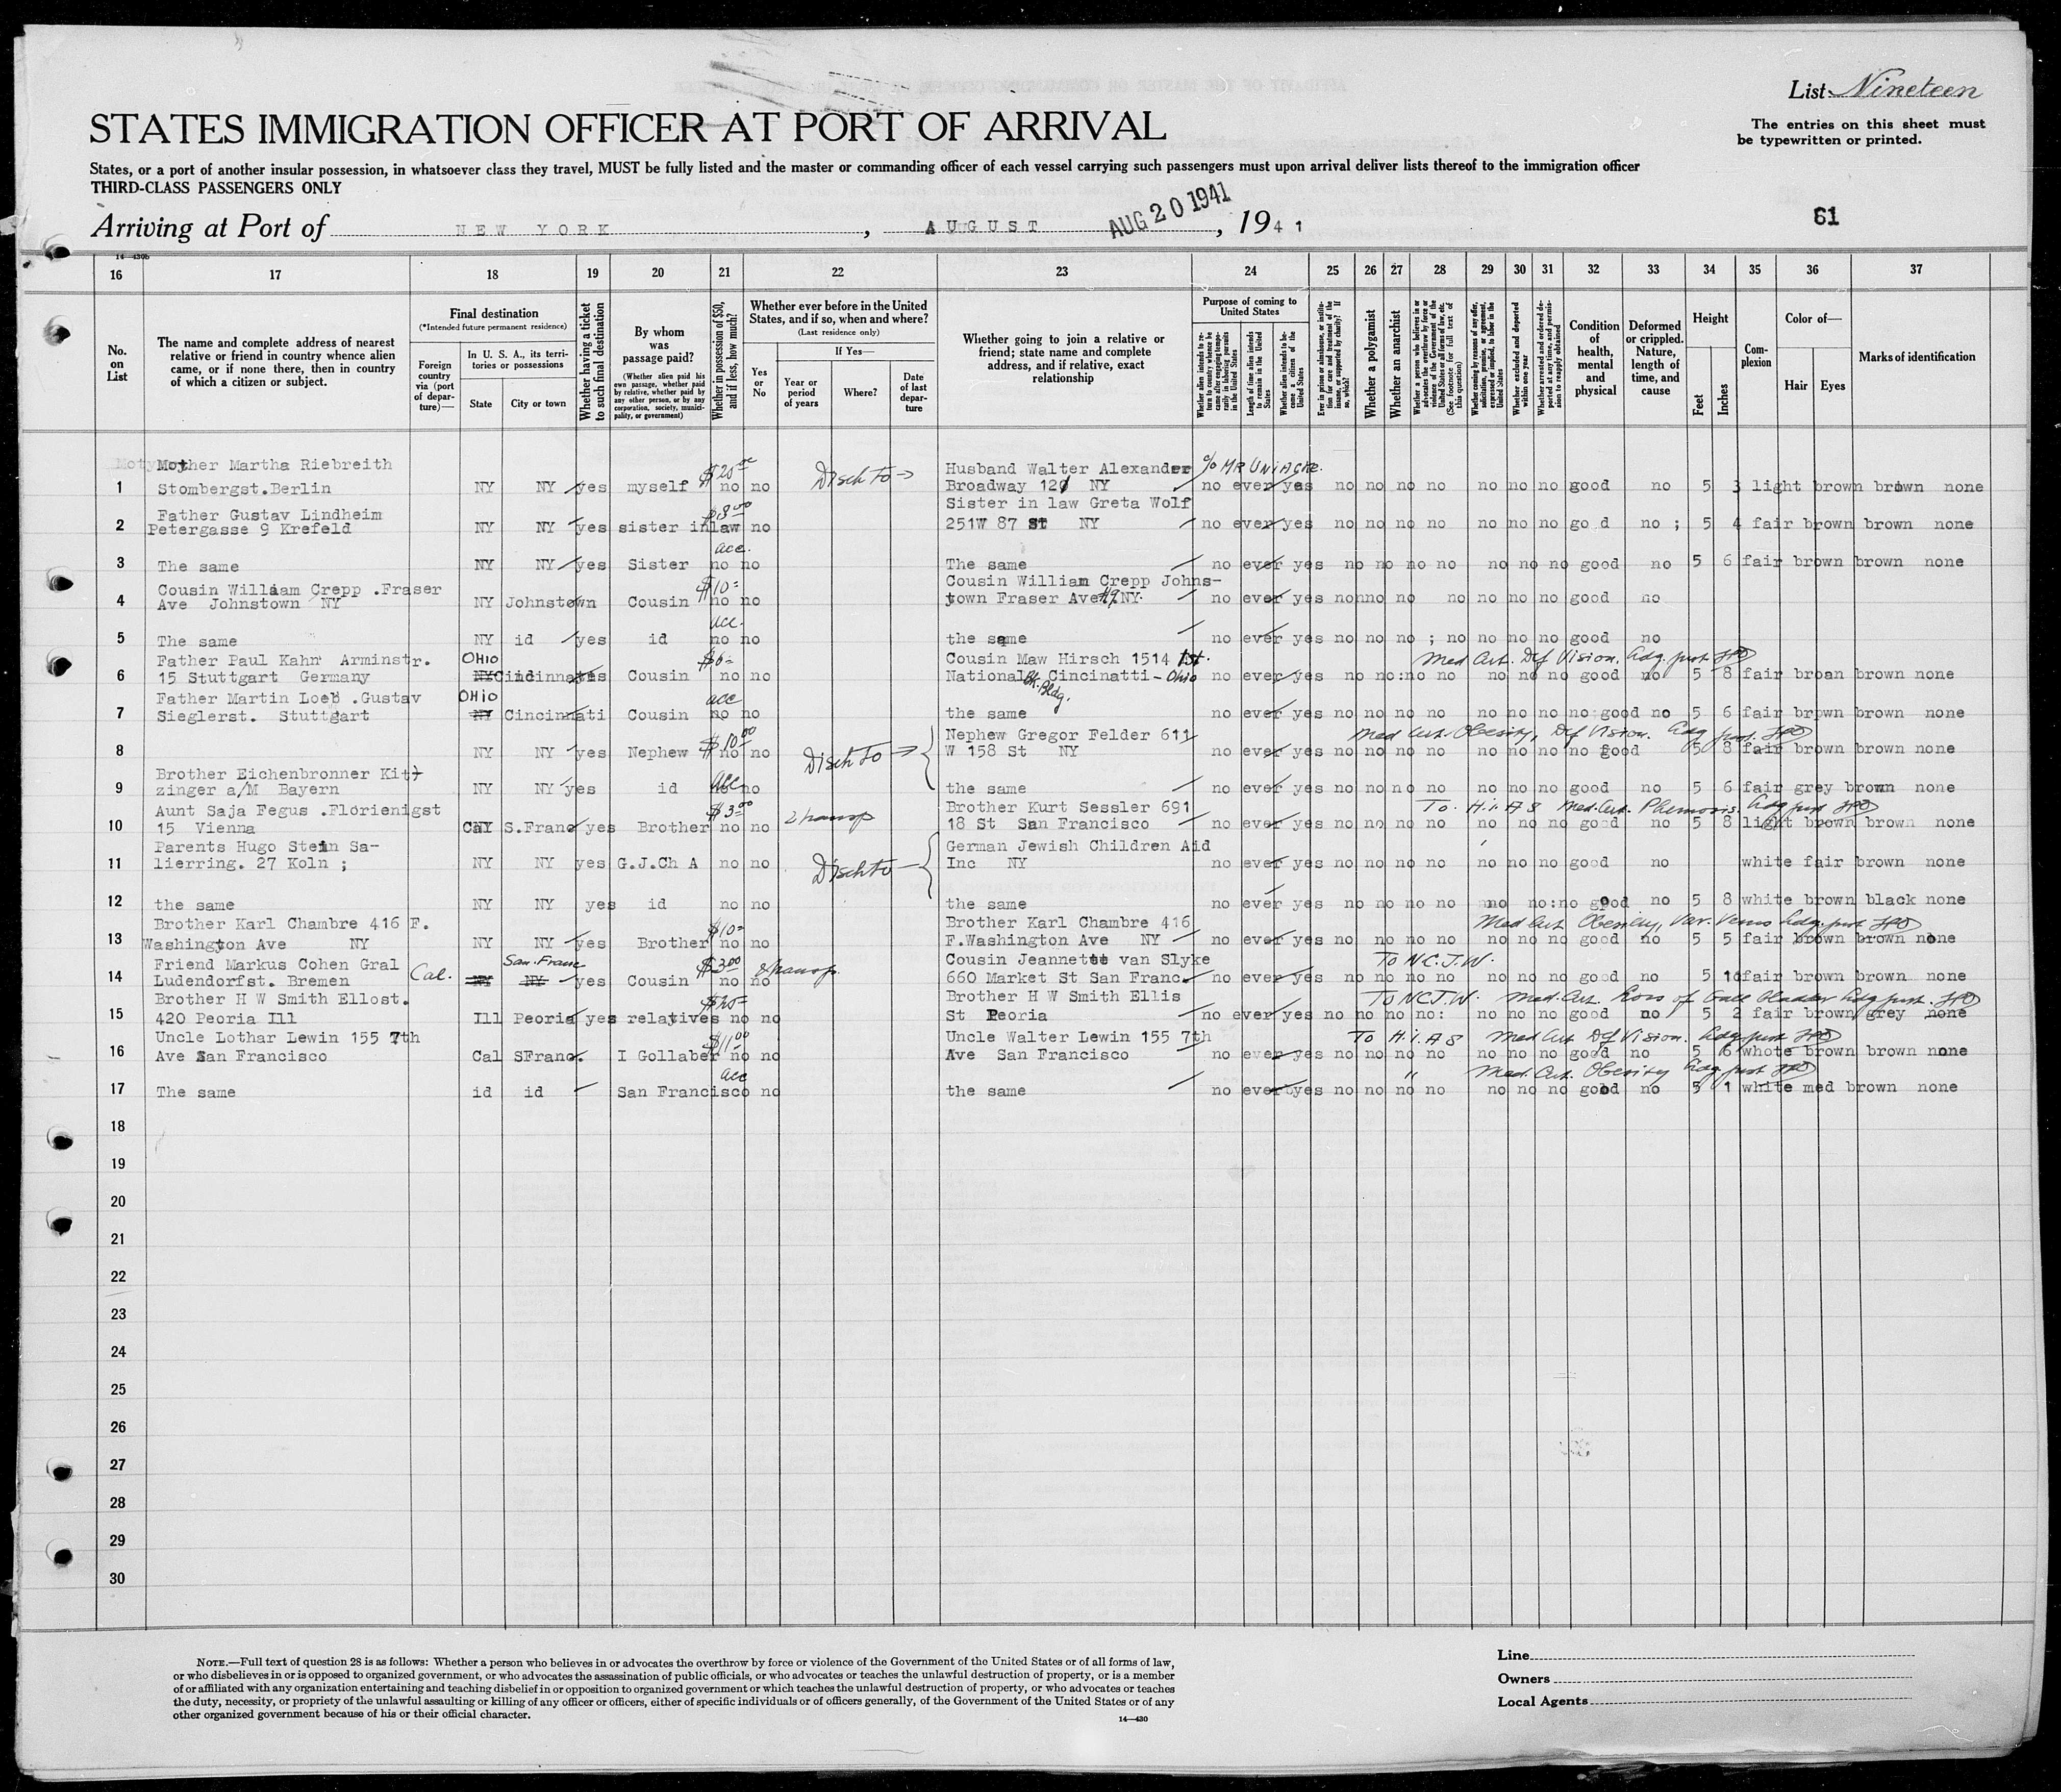 List Nineteen
The entries on this sheet must
be typewritten or printed.
STATES IMMIGRATION OFFICER AT PORT OF ARRIVAL
States, or a port of another insular possession, in whatsoever class they travel, MUST be fully listed and the master or commanding officer of each vessel carrying such passengers must upon arrival deliver lists thereof to the immigration officer
THIRD-CLASS PASSENGERS ONLY
Arriving at Port of NEW YORK, AUGUST AUG 20 1941, 1941
61
14—430b
16 17 18 19 20 21 22 23 24 25 26 27 28 29 30 31 32 33 34 35 36 37
No. on List
The name and complete address of nearest relative or friend in country whence alien came, or if none there, then in country of which a citizen or subject.
Final destination
(*Intended future permanent residence)
Foreign country via (port of departure)—
In U. S. A., its territories or possessions
State
City or town
Whether having a ticket to such final destination
By whom was passage paid?
(Whether alien paid his own passage, whether paid by relative, whether paid by any other person, or by any corporation, society, municipality, or government)
Whether in possession of $50, and if less, how much?
Whether ever before in the United States, and if so, when and where?
(Last residence only)
Yes or No
If Yes—
Year or period of years
Where?
Date of last departure
Whether going to join a relative or friend; state name and complete address, and if relative, exact relationship
Purpose of coming to United States
Whether alien intends to return to country whence he came after engaging temporarily in laboring pursuits in the United States
Length of time alien intends to remain in the United States
Whether alien intends to become a citizen of the United States
Ever in prison or almshouse, or institution for care and treatment of the insane, or supported by charity? If so, which?
Whether a polygamist
Whether an anarchist
Whether a person who believes in or advocates the overthrow by force or violence of the Government of the United States or all forms of law, etc. (See footnote for full text of this question)
Whether coming by reasons of any offer, solicitation, promise, or agreement, expressed or implied, to labor in the United States
Whether excluded and deported within one year
Whether arrested and ordered deported at any time, and permission to reapply obtained
Condition of health, mental and physical
Deformed or crippled. Nature, length of time, and cause
Height
Feet
Inches
Complexion
Color of—
Hair
Eyes
Marks of identification
Mother Martha Riebreith $20 00 Disch To → Husband Walter Alexander % MR UNIACKE.
1 Stombergst.Berlin NY NY yes myself no no Broadway 120 NY no ever yes no no no no no no no good no 5 3 light brown brown none
Father Gustav Lindheim $8 00 Sister in law Greta Wolf
2 Petergasse 9 Krefeld NY NY yes sister inlaw no 251W 87 st NY no ever yes no no no no no no no go d no ; 5 4 fair brown brown none
acc.
3 The same NY NY yes Sister no no The same no ever yes no no no no no no no good no 5 6 fair brown brown none
Cousin William Crepp .Fraser $10= Cousin William Crepp Johns-
4 Ave Johnstown NY NY Johnstown Cousin no no town Fraser Ave #9 NY. no ever yes no no no no no no no good no
acc.
5 The same NY id yes id no no the same no ever yes no no no ; no no no no good no
Father Paul Kahn Arminstr. OHIO $6= Cousin Maw Hirsch 1514 1st. Med Cert. Def Vision. Adg. just
6 15 Stuttgart Germany NY Cincinnati yes Cousin no no National Bk. Bldg. Cincinatti - Ohio no ever yes no no:no no no no no good no 5 8 fair broan brown none
Father Martin Loeb .Gustav OHIO acc
7 Sieglerst. Stuttgart NY Cincinnati Cousin no no the same no ever yes no no no no no no no no:good no 5 6 fair brown brown none
$10 00 Nephew Gregor Felder 611 Med Cert. Obesity, Def Vision. Adg just
8 NY NY yes Nephew no no Disch To → W 158 St NY no ever yes no no no no no no no no good 5 8 fair brown brown none
Brother Eichenbronner Kit
9 zinger a/M Bayern NY NY yes id acc no the same no ever yes no no no no no no no good no 5 6 fair grey brown none
Aunt Saja Fegus .Florienigst $3 00 Brother Kurt Sessler 691 To. H.I.A S Med. Cert. Phemosis. Adg just
10 15 Vienna Cal S.Franc yes Brother no no 18 St San Francisco no ever yes no no no no no no no good no 5 8 light brown brown none
Parents Hugo Stein Sa- German Jewish Children Aid
11 lierring. 27 Koln ; NY NY yes G.J.Ch A no no Disch to Inc NY no ever yes no no no no no no no good no white fair brown none
12 the same NY NY yes id no no the same no ever yes no no no no no no:no good no 5 8 white brown black none
Brother Karl Chambre 416 F. $10= Brother Karl Chambre 416 Med Cert Obesity, Var. Veins Adg. just
13 Washington Ave NY NY NY yes Brother no no F.Washington Ave NY no ever yes no no no no no no no good no 5 5 fair brown brown none
Friend Markus Cohen Gral Cal. San. Franc $3 00 Cousin Jeannette van Slyke To N.C.J.W.
14 Ludendorfst. Bremen NY NY yes Cousin no no 660 Market St San Franc. no ever yes no no no no no no no good no 5 10 fair brown brown none
Brother H W Smith Ellost. $20= Brother H W Smith Ellis To NCJ.W. Med. Cert. Loss of Gall Bladder Adg just.
15 420 Peoria Ill Ill Peoria yes relatives no no St Peoria no ever yes no no no no: no no no good no 5 2 fair brown grey none
Uncle Lothar Lewin 155 7th $11 00 Uncle Walter Lewin 155 7th To H.I.A S Med Cert Def Vision. Adg just
16 Ave San Francisco Cal SFranc. I Gollaber no no Ave San Francisco no ever yes no no no no no no no good no 5 6 whote brown brown none
acc " Med. Cert. Obesity Adg just
17 The same id id San Francisco no the same no ever yes no no no no no no no good no 5 1 white med brown none
18
19
20
21
22
23
24
25
26
27
28
29
30
NOTE.—Full text of question 28 is as follows: Whether a person who believes in or advocates the overthrow by force or violence of the Government of the United States or of all forms of law,
or who disbelieves in or is opposed to organized government, or who advocates the assassination of public officials, or who advocates or teaches the unlawful destruction of property, or is a member
of or affiliated with any organization entertaining and teaching disbelief in or opposition to organized government or which teaches the unlawful destruction of property, or who advocates or teaches
the duty, necessity, or propriety of the unlawful assaulting or killing of any officer or officers, either of specific individuals or of officers generally, of the Government of the United States or of any
other organized government because of his or their official character.
14—430
Line
Owners
Local Agents